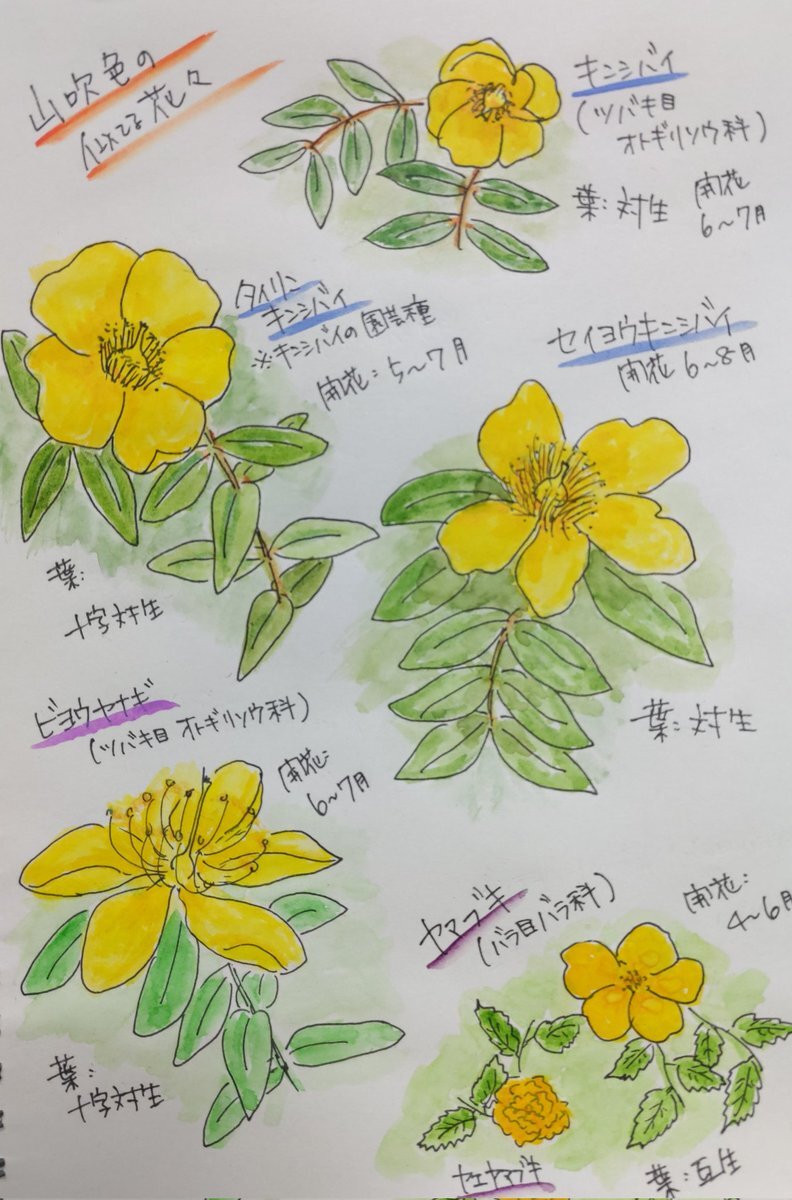 山吹色の
似てる花々
キンシバイ
(ツバキ目
オトギリソウ科)
葉:対生
開花
6〜7月
タイリン
キンシバイ
※キンシバイの園芸種
開花:5〜7月
葉:
十字対生
セイヨウキンシバイ
開花 6〜8月
葉:対生
ビヨウヤナギ
(ツバキ目 オトギリソウ科)
開花:
6〜7月
葉:
十字対生
ヤマブキ
(バラ目バラ科)
開花:
4〜6月
ヤエヤマブキ
葉:互生